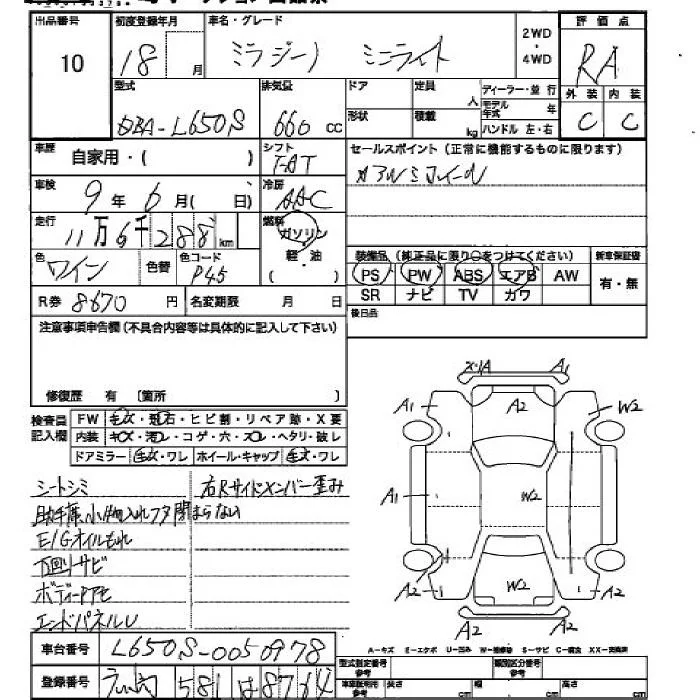 出品番号 初度登録年月 車名・グレード 2WD・4WD 評価点
10 18 月 ミラジーノ ミニライト RA
型式 排気量 ドア 定員 人 ディーラー・並行 外装 内装
DBA-L650S 660 cc 形状 積載 kg モデル年式 年 ハンドル 左・右 C C
車歴 自家用・( ) シフト FAT セールスポイント(正常に機能するものに限ります)
車検 9年6月( 日) 冷房 AAC 社外アルミホイール
走行 11万6千288km 燃料 ガソリン 軽・油 ( )
色 ワイン 色替 色コード P45 装備品(純正品に限り○をつけてください) 新車保証書
PS PW ABS エアB AW 有・無
R券 8670円 名変期限 月 日 SR ナビ TV カワ
後日品
注意事項申告欄(不具合内容等は具体的に記入して下さい)
修復歴 有 〔箇所 〕
検査員記入欄 FW キズ・飛石・ヒビ割・リペア跡・X要
内装 キズ・汚レ・コゲ・穴・スレ・ヘタリ・破レ
ドアミラー キズ・ワレ ホイール・キャップ キズ・ワレ
シートシミ 右Rサイドメンバー歪み
助手席小物入れフタ閉まらない
E/Gオイルもれ
下回りサビ
ボディー
エンドパネルU
X・1A A1
A1 A2 W2
A1 W2
A2 W2 A2
A2 A2
A-キズ E-エクボ U-凹み W-補修跡 S-サビ C-腐食 XX-交換済
車台番号 L650S-0050978
登録番号 581 は 8764
型式指定番号 参考 類別区分番号 参考
車庫証明用 参考 長さ cm 幅 cm 高さ cm